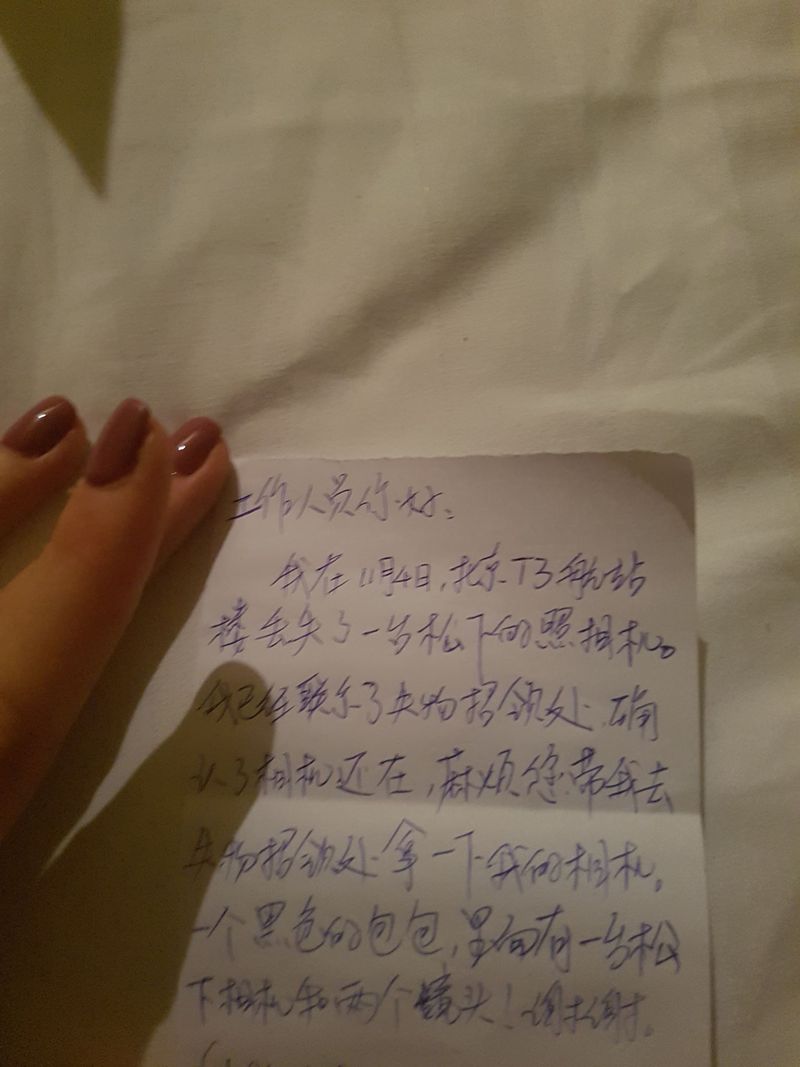 工作人员你好：
我在11月4日，北京T3航站
楼丢失了一台松下的照相机。
我已经联系了失物招领处，确
认了相机还在，麻烦您带我去
失物招领处拿一下我的相机。
一个黑色的包包，里面有一台松
下相机和两个镜头！谢谢。